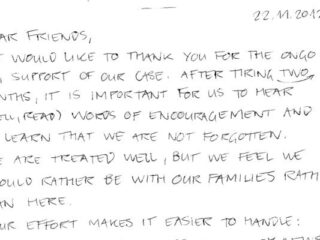 22.11.201
AR FRIENDS,
WOULD LIKE TO THANK YOU FOR THE ONGO
SUPPORT OF OUR CASE. AFTER TIRING TWO
NTHS, IT IS IMPORTANT FOR US TO HEAR
READ) WORDS OF ENCOURAGEMENT AND
LEARN THAT WE ARE NOT FORGOTTEN.
ARE TREATED WELL, BUT WE FEEL WE
OULD RATHER BE WITH OUR FAMILIES RATH
AN HERE.
UR EFFORT MAKES IT EASIER TO HANDLE: